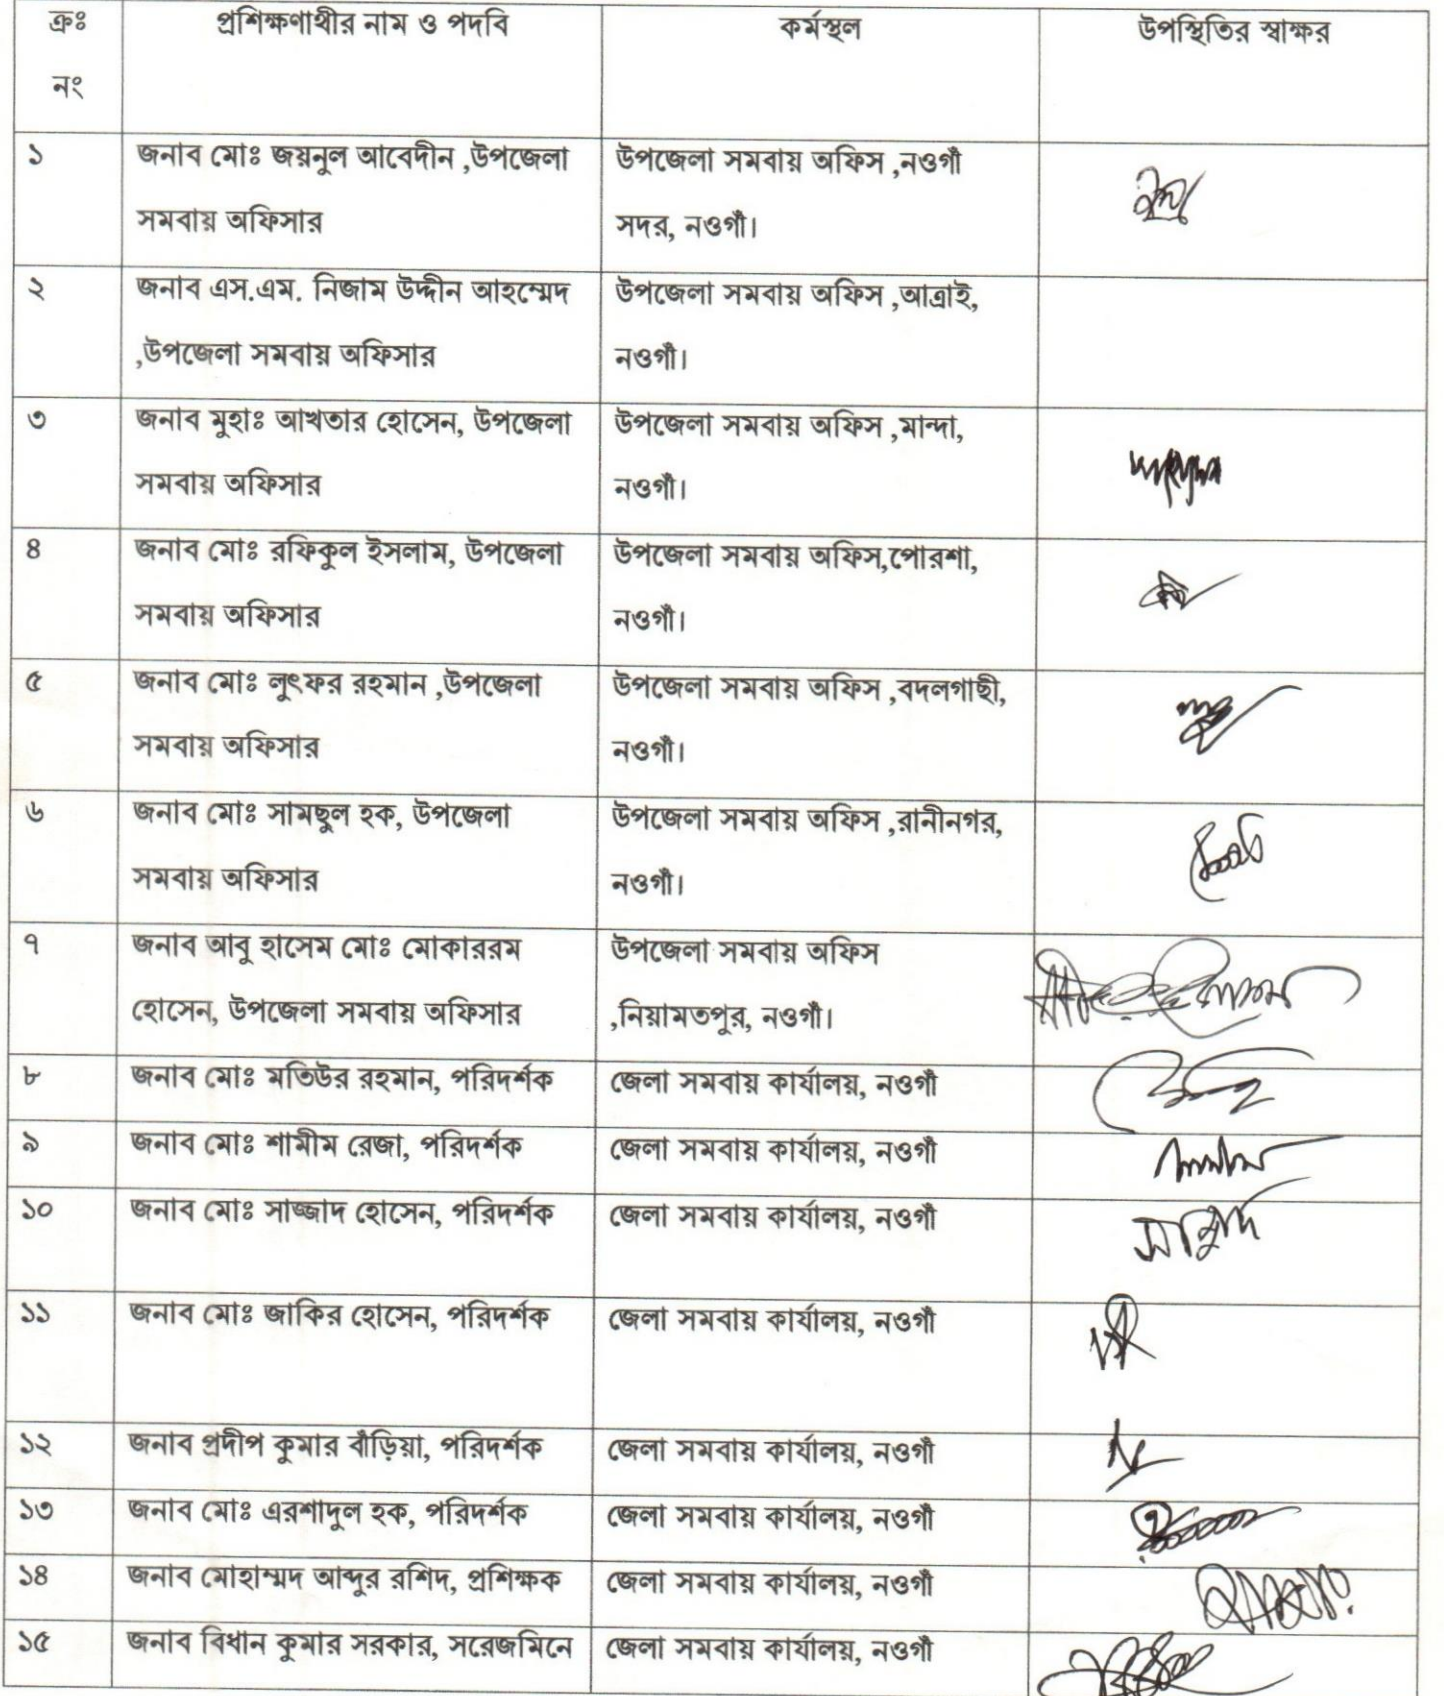 ক্রঃ প্রশিক্ষণার্থীর নাম ও পদবি কর্মস্থল উপস্থিতির স্বাক্ষর
নং
১ জনাব মোঃ জয়নুল আবেদীন ,উপজেলা উপজেলা সমবায় অফিস ,নওগাঁ
সমবায় অফিসার সদর, নওগাঁ।
২ জনাব এস.এম. নিজাম উদ্দীন আহম্মেদ উপজেলা সমবায় অফিস ,আত্রাই,
,উপজেলা সমবায় অফিসার নওগাঁ।
৩ জনাব মুহাঃ আখতার হোসেন, উপজেলা উপজেলা সমবায় অফিস ,মান্দা,
সমবায় অফিসার নওগাঁ।
৪ জনাব মোঃ রফিকুল ইসলাম, উপজেলা উপজেলা সমবায় অফিস,পোরশা,
সমবায় অফিসার নওগাঁ।
৫ জনাব মোঃ লুৎফর রহমান ,উপজেলা উপজেলা সমবায় অফিস ,বদলগাছী,
সমবায় অফিসার নওগাঁ।
৬ জনাব মোঃ সামছুল হক, উপজেলা উপজেলা সমবায় অফিস ,রানীনগর,
সমবায় অফিসার নওগাঁ।
৭ জনাব আবু হাসেম মোঃ মোকাররম উপজেলা সমবায় অফিস
হোসেন, উপজেলা সমবায় অফিসার ,নিয়ামতপুর, নওগাঁ।
৮ জনাব মোঃ মতিউর রহমান, পরিদর্শক জেলা সমবায় কার্যালয়, নওগাঁ
৯ জনাব মোঃ শামীম রেজা, পরিদর্শক জেলা সমবায় কার্যালয়, নওগাঁ
১০ জনাব মোঃ সাজ্জাদ হোসেন, পরিদর্শক জেলা সমবায় কার্যালয়, নওগাঁ
১১ জনাব মোঃ জাকির হোসেন, পরিদর্শক জেলা সমবায় কার্যালয়, নওগাঁ
১২ জনাব প্রদীপ কুমার বাঁড়িয়া, পরিদর্শক জেলা সমবায় কার্যালয়, নওগাঁ
১৩ জনাব মোঃ এরশাদুল হক, পরিদর্শক জেলা সমবায় কার্যালয়, নওগাঁ
১৪ জনাব মোহাম্মদ আব্দুর রশিদ, প্রশিক্ষক জেলা সমবায় কার্যালয়, নওগাঁ
১৫ জনাব বিধান কুমার সরকার, সরেজমিনে জেলা সমবায় কার্যালয়, নওগাঁ